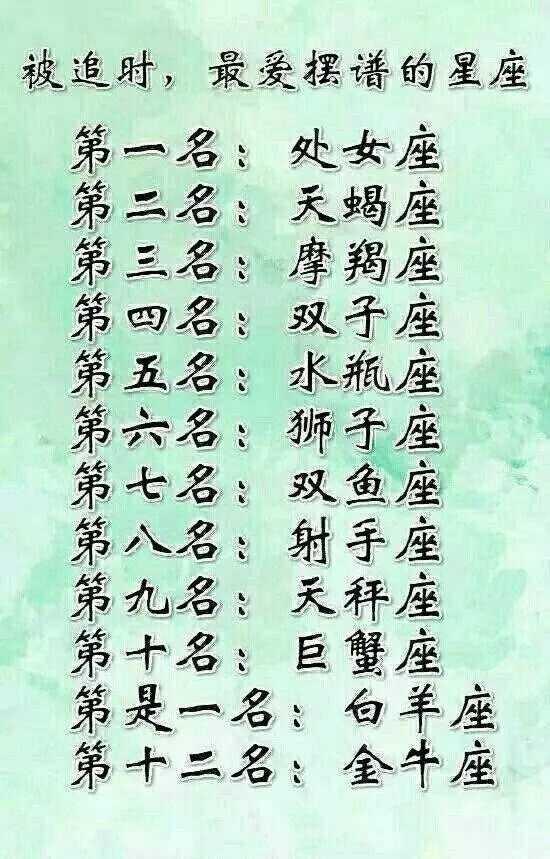 被追时，最爱摆谱的星座
第一名：处女座
第二名：天蝎座
第三名：摩羯座
第四名：双子座
第五名：水瓶座
第六名：狮子座
第七名：双鱼座
第八名：射手座
第九名：天秤座
第十名：巨蟹座
第是一名：白羊座
第十二名：金牛座